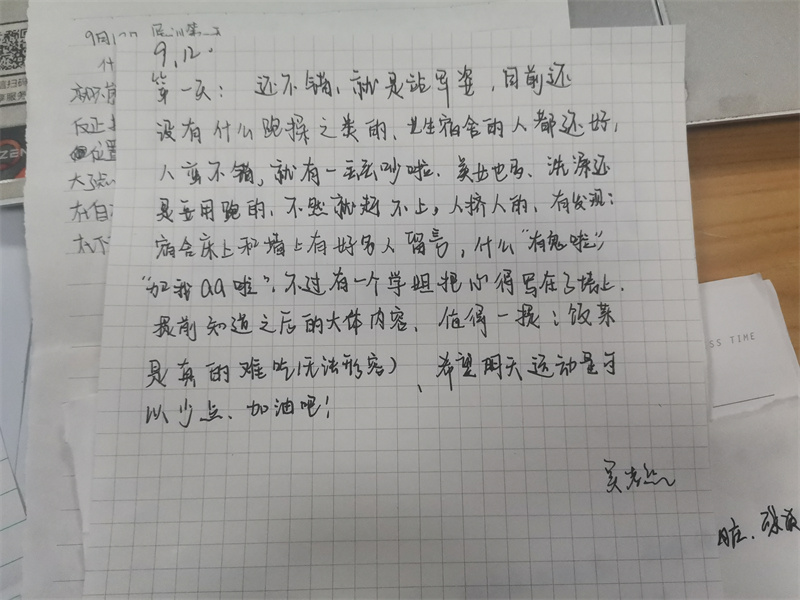 9月12
9.12.
第一天: 还不错、就是站军姿,目前还
没有什么跑操之类的、女生宿舍的人都还好,
人蛮不错,就有一丢丢吵啦、 也 、洗澡还
是要用跑的、不然就赶不上,人挤人的、有发现:
宿舍床上和墙上有好多人留言,什么“有鬼啦”
“加我QQ啦”、不过有一个学姐把心得写在了墙上、
提前知道之后的大体内容、值得一提:饭菜
是真的难吃(无法形容)、希望明天运动量可
以少点、加油吧!
反正
位置
ZEN
SS TIME